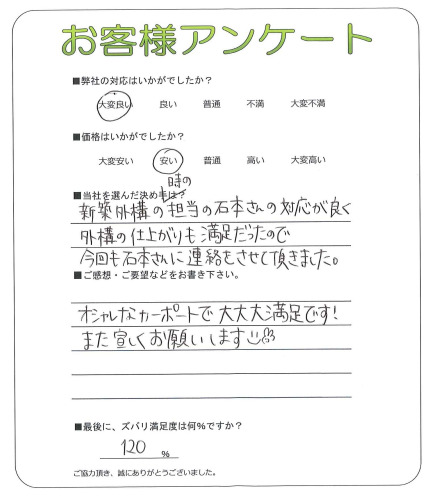 お客様アンケート
■弊社の対応はいかがでしたか？
大変良い 良い 普通 不満 大変不満
■価格はいかがでしたか？
大変安い 安い 普通 高い 大変高い
■当社を選んだ決め手は？
新築外構の時の担当の石本さんの対応が良く
外構の仕上がりも満足だったので
今回も石本さんに連絡をさせて頂きました。
■ご感想・ご要望などをお書き下さい。
オシャレなカーポートで大大大満足です！
また宜しくお願いします
■最後に、ズバリ満足度は何％ですか？
120 ％
ご協力頂き、誠にありがとうございました。